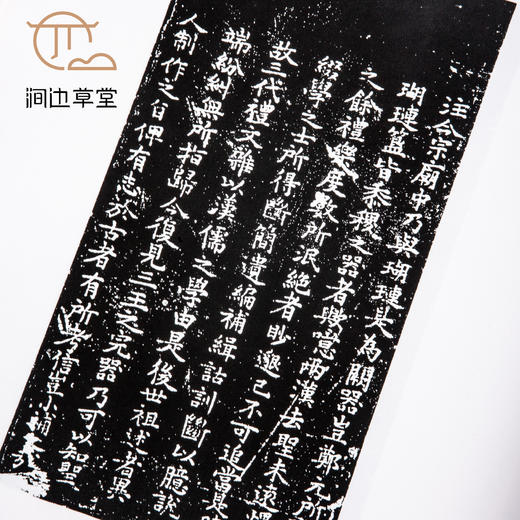 涧边草堂
注今宗廟中乃與瑚璉共為闕器豈鄭元所
瑚璉簋皆黍稷之器者歟當兩漢去聖未遠煙
之餘禮樂度數所泯絕者眇邈已不可追當是時
綴學之士所得斷簡遺編補緝詁訓斷以臆說
故三代禮文雜以漢儒之學由是後世祖述者異
端紛糾無所指歸今復見三王之完器乃可以知聖
人制作之自俾有志於古者有所考信豈小補哉